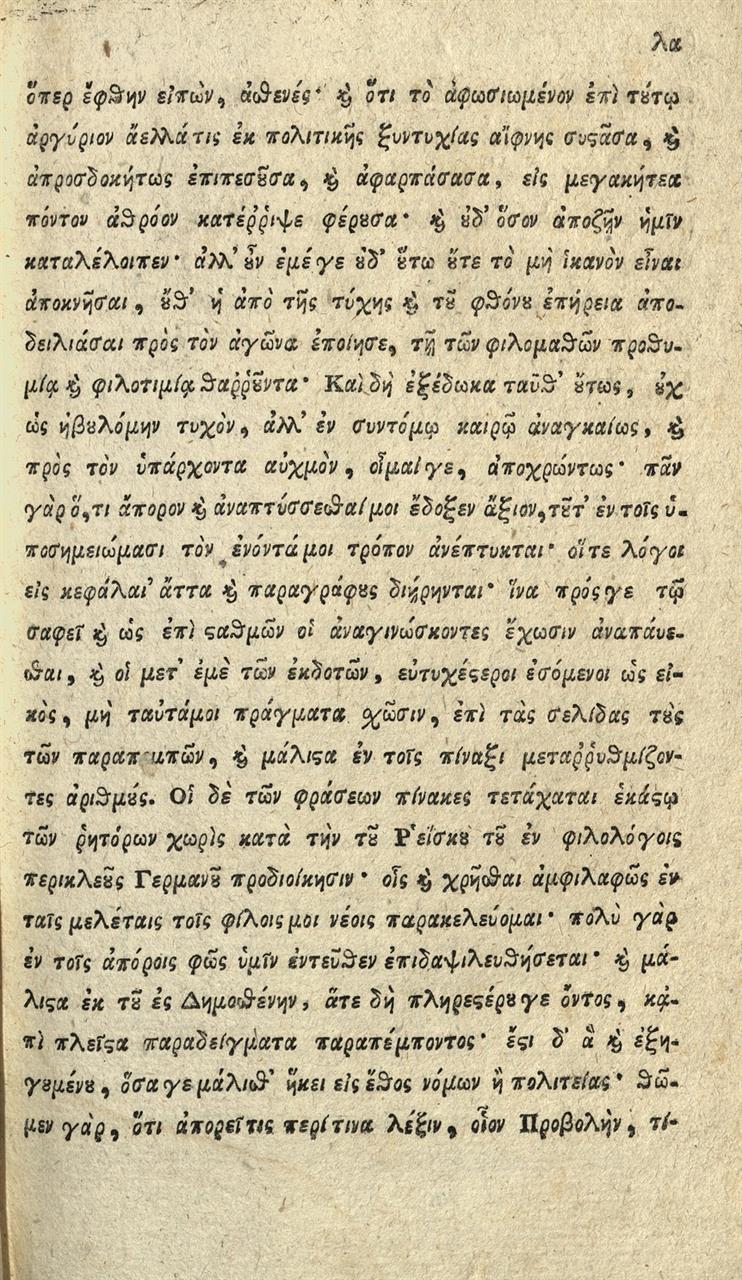 λα
ὅπερ ἔφθην εἰπὼν, ἀσθενές· ϗ̀ ὅτι τὸ ἀφωσιωμένον ἐπὶ τȣ́τῳ
ἀργύριον ἄελλά τις ἐκ πολιτικῆς ξυντυχίας αἴφνης συϛᾶσα, ϗ̀
ἀπροσδοκήτως ἐπιπεσȣ͂σα, ϗ̀ ἀφαρπάσασα, εἰς μεγακήτεα
πόντον ἀθρόον κατέῤῥιψε φέρȣσα· ϗ̀ ȣ̓δ' ὅσον ἀποζῆν ἡμῖν
καταλέλοιπεν· ἀλλ' ȣ̓͂ν ἐμέγε ȣ̓δ' ȣ̔́τω ȣ̓́τε τὸ μὴ ἱκανὸν εἶναι
ἀποκνῆσαι, ȣ̓́θ' ἡ ἀπὸ τῆς τύχης ϗ̀ τȣ͂ φθόνȣ ἐπήρεια ἀπο-
δειλιάσαι πρὸς τὸν ἀγῶνα ἐποίησε, τῇ τῶν φιλομαθῶν προθυ-
μίᾳ ϗ̀ φιλοτιμίᾳ θαῤῥȣ͂ντα· Καὶ δὴ ἐξέδωκα ταῦθ' ȣ̔́τως, ȣ̓χ
ὡς ἠβȣλόμην τυχὸν, ἀλλ' ἐν συντόμῳ καιρῷ ἀναγκαίως, ϗ̀
πρὸς τὸν ὑπάρχοντα αὐχμὸν, οἶμαίγε, ἀποχρώντως· πᾶν
γὰρ ὅ,τι ἄπορον ϗ̀ ἀναπτύσσεσθαί μοι ἔδοξεν ἄξιον, τȣ͂τ' ἐν τοῖς ὑ-
ποσημειώμασι τὸν ἐνόντά μοι τρόπον ἀνέπτυκται· οἵτε λόγοι
εἰς κεφάλαι' ἄττα ϗ̀ παραγράφȣς διῄρηνται· ἵνα πρόςγε τῷ
σαφεῖ ϗ̀ ὡς ἐπὶ ϛαθμῶν οἱ ἀναγινώσκοντες ἔχωσιν ἀναπάυε-
σθαι, ϗ̀ οἱ μετ' ἐμὲ τῶν ἐκδοτῶν, εὐτυχέϛεροι ἐσόμενοι ὡς εἰ-
κὸς, μὴ ταὐτάμοι πράγματα σχῶσιν, ἐπὶ τὰς σελίδας τȣ̀ς
τῶν παραπομπῶν, ϗ̀ μάλιϛα ἐν τοῖς πίναξι μεταῤῥυθμίζον-
τες ἀριθμȣ́ς. Οἱ δὲ τῶν φράσεων πίνακες τετάχαται ἑκάϛῳ
τῶν ῥητόρων χωρὶς κατὰ τὴν τȣ͂ Ῥεΐσκȣ τȣ͂ ἐν φιλολόγοις
περικλεȣ͂ς Γερμανȣ͂ προδιοίκησιν· οἷς ϗ̀ χρῆσθαι ἀμφιλαφῶς ἐν
ταῖς μελέταις τοῖς φίλοις μοι νέοις παρακελεύομαι· πολὺ γὰρ
ἐν τοῖς ἀπόροις φῶς ὑμῖν ἐντεῦθεν ἐπιδαψιλευθήσεται· ϗ̀ μά-
λιϛα ἐκ τȣ͂ ἐς Δημοσθένην, ἅτε δὴ πληρεϛέρȣγε ὄντος, κᾀ-
πὶ πλεῖϛα παραδείγματα παραπέμποντος· ἔϛι δ' ἃ ϗ̀ ἐξη-
γȣμένȣ, ὅσα γε μάλισθ' ἥκει εἰς ἔθος νόμων ἢ πολιτείας· θῶ-
μεν γὰρ, ὅτι ἀπορεῖτις περίτινα λέξιν, οἷον Προβολὴν, τί-